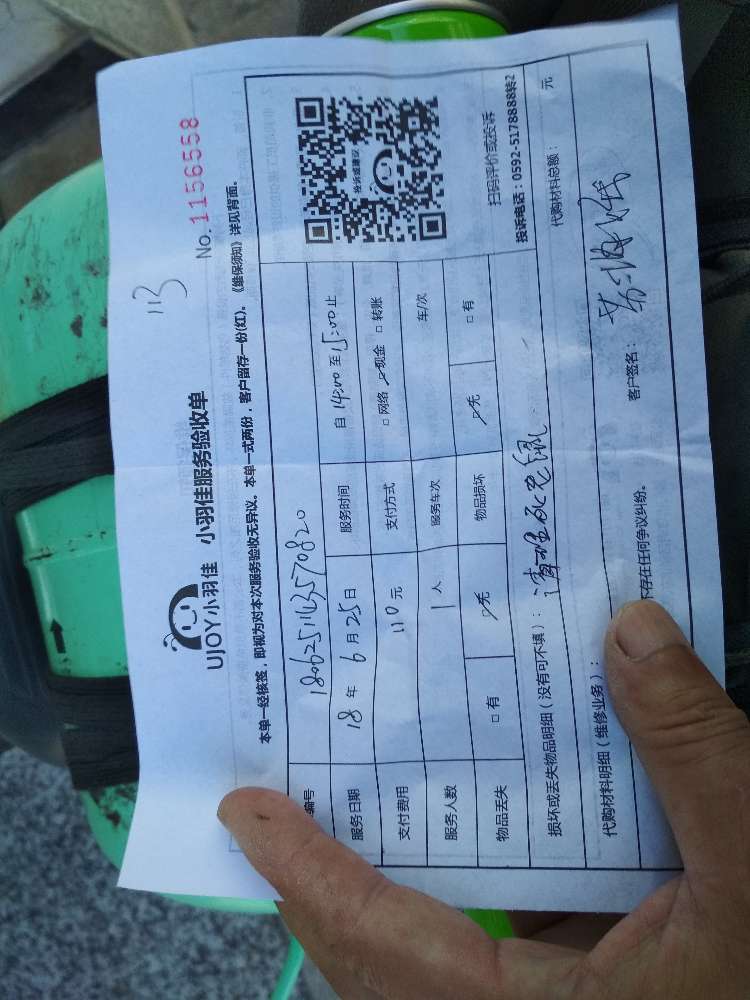 113
UJOY小羽佳 小羽佳服务验收单
No. 1156558
本单一经核签，即视为对本次服务验收无异议。本单一式两份，客户留存一份(红)。《维保须知》详见背面。
编号 180625114357082O
服务日期 18 年 6 月 25 日 服务时间 自 14:00 至 15:00 止
支付费用 110 元 支付方式 □ 网络 ☑ 现金 □ 转账
服务人数 1 人 服务车次 车/次
物品丢失 □ 有 ☑ 无 物品损坏 ☑ 无 □ 有
投诉或建议
扫码评价或投诉
投诉电话：0592-5178888转2
损坏或丢失物品明细（没有可不填）：清理死老鼠
代购材料明细（维修业务）： 代购材料总额： 元
不存在任何争议纠纷。 客户签名：